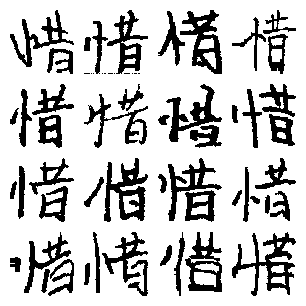 惜惜惜惜
惜惜惜惜
惜惜惜惜
惜惜惜惜